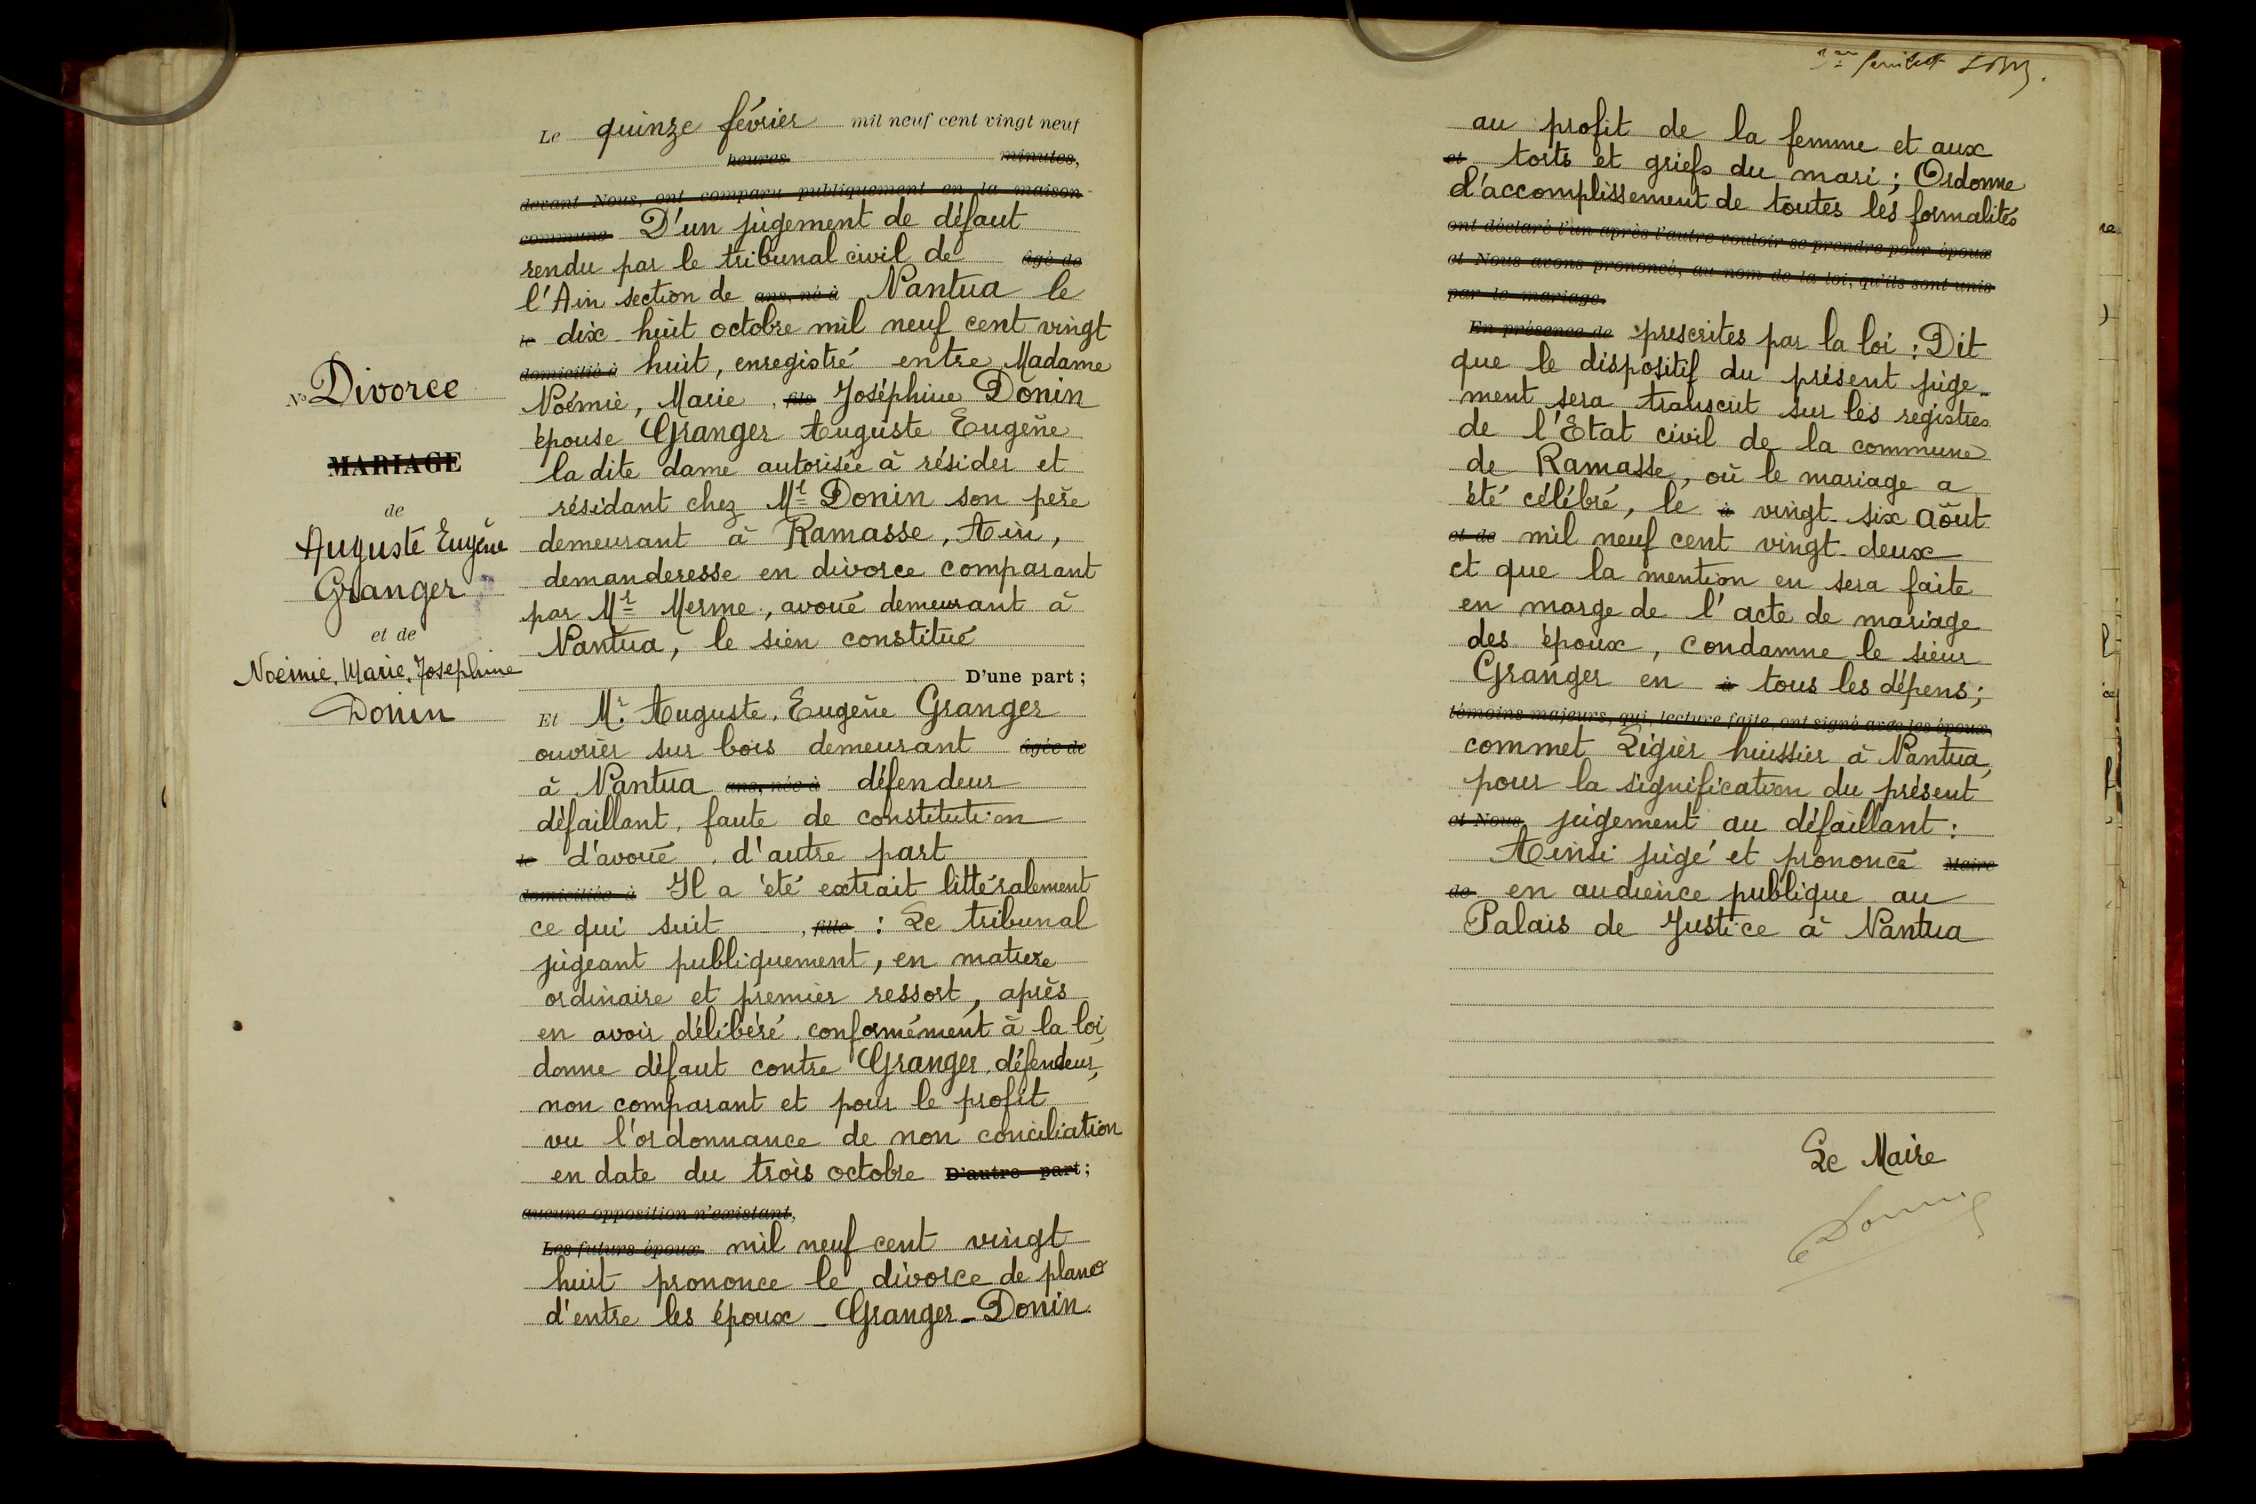 N° Divorce
MARIAGE
de
Auguste Eugène
Granger
et de
Noémie, Marie, Josephine
Donin
Le quinze février mil neuf cent vingt neuf
heures minutes,
devant Nous, ont comparu publiquement en la maison
commune D'un jugement de défaut
rendu par le tribunal civil de âgé de
l'Ain section de ans, né à Nantua le
le dix huit octobre mil neuf cent vingt
domicilié à huit, enregistré entre Madame
Noémie, Marie, fils Joséphine Donin
épouse Granger Auguste Eugène
la dite dame autorisée à résider et
résidant chez Mr Donin son père
demeurant à Ramasse, Ain,
demanderesse en divorce comparant
par Mr Merme, avoué demeurant à
Nantua, le sien constitué
D'une part ;
Et Mr Auguste, Eugène Granger
ouvrier sur bois demeurant âgée de
à Nantua ans, née à défendeur
défaillant, faute de constitution
le d'avoué, d'autre part
domiciliée à Il a été extrait littéralement
ce qui suit , fille : Le tribunal
jugeant publiquement, en matière
ordinaire et premier ressort, après
en avoir délibéré conformément à la loi,
donne défaut contre Granger, défendeur,
non comparant et pour le profit
vu l'ordonnance de non conciliation
en date du trois octobre D'autre part ;
aucune opposition n'existant,
Les futurs époux mil neuf cent vingt
huit prononce le divorce de plano
d'entre les époux - Granger - Donin.
au profit de la femme et aux
et torts et griefs du mari ; Ordonne
d'accomplissement de toutes les formalités
ont déclaré l'un après l'autre vouloir se prendre pour époux
et Nous avons prononcé, au nom de la loi, qu'ils sont unis
par le mariage.
En présence de prescrites par la loi : Dit
que le dispositif du présent juge-
ment sera transcrit sur les registres
de l'Etat civil de la commune
de Ramasse, où le mariage a
été célébré, le à vingt-six Août
et de mil neuf cent vingt-deux
et que la mention en sera faite
en marge de l'acte de mariage
des époux, condamne le sieur
Granger en à tous les dépens ;
témoins majeurs, qui, lecture faite, ont signé avec les époux
commet Ligier huissier à Nantua,
pour la signification du présent
et Nous jugement au défaillant :
Ainsi jugé et prononcé Maire
de en audience publique au
Palais de Justice à Nantua
Le Maire